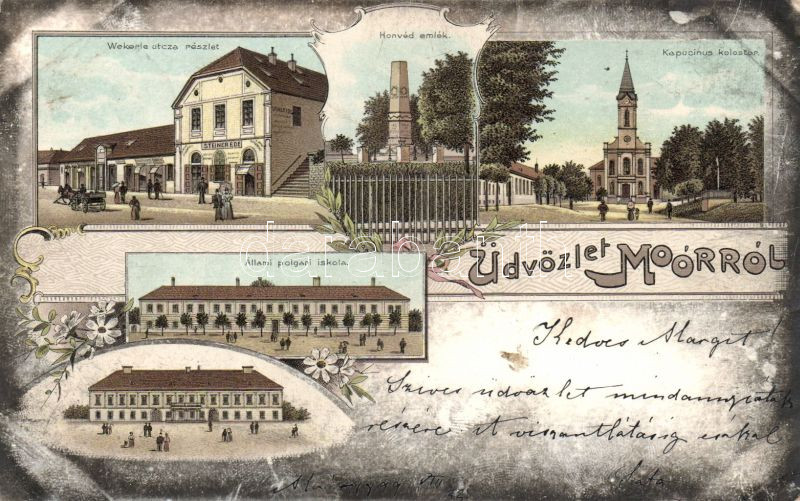 Wekerle utcza részlet
Honvéd emlék.
Kapucinus kolostor.
STEINER EDE
Állami polgári iskola.
Üdvözlet MOÓRRÓL
Kedves Margit!
Szives üdvözlet mindannyiatok
részére a viszontlátásig csókol